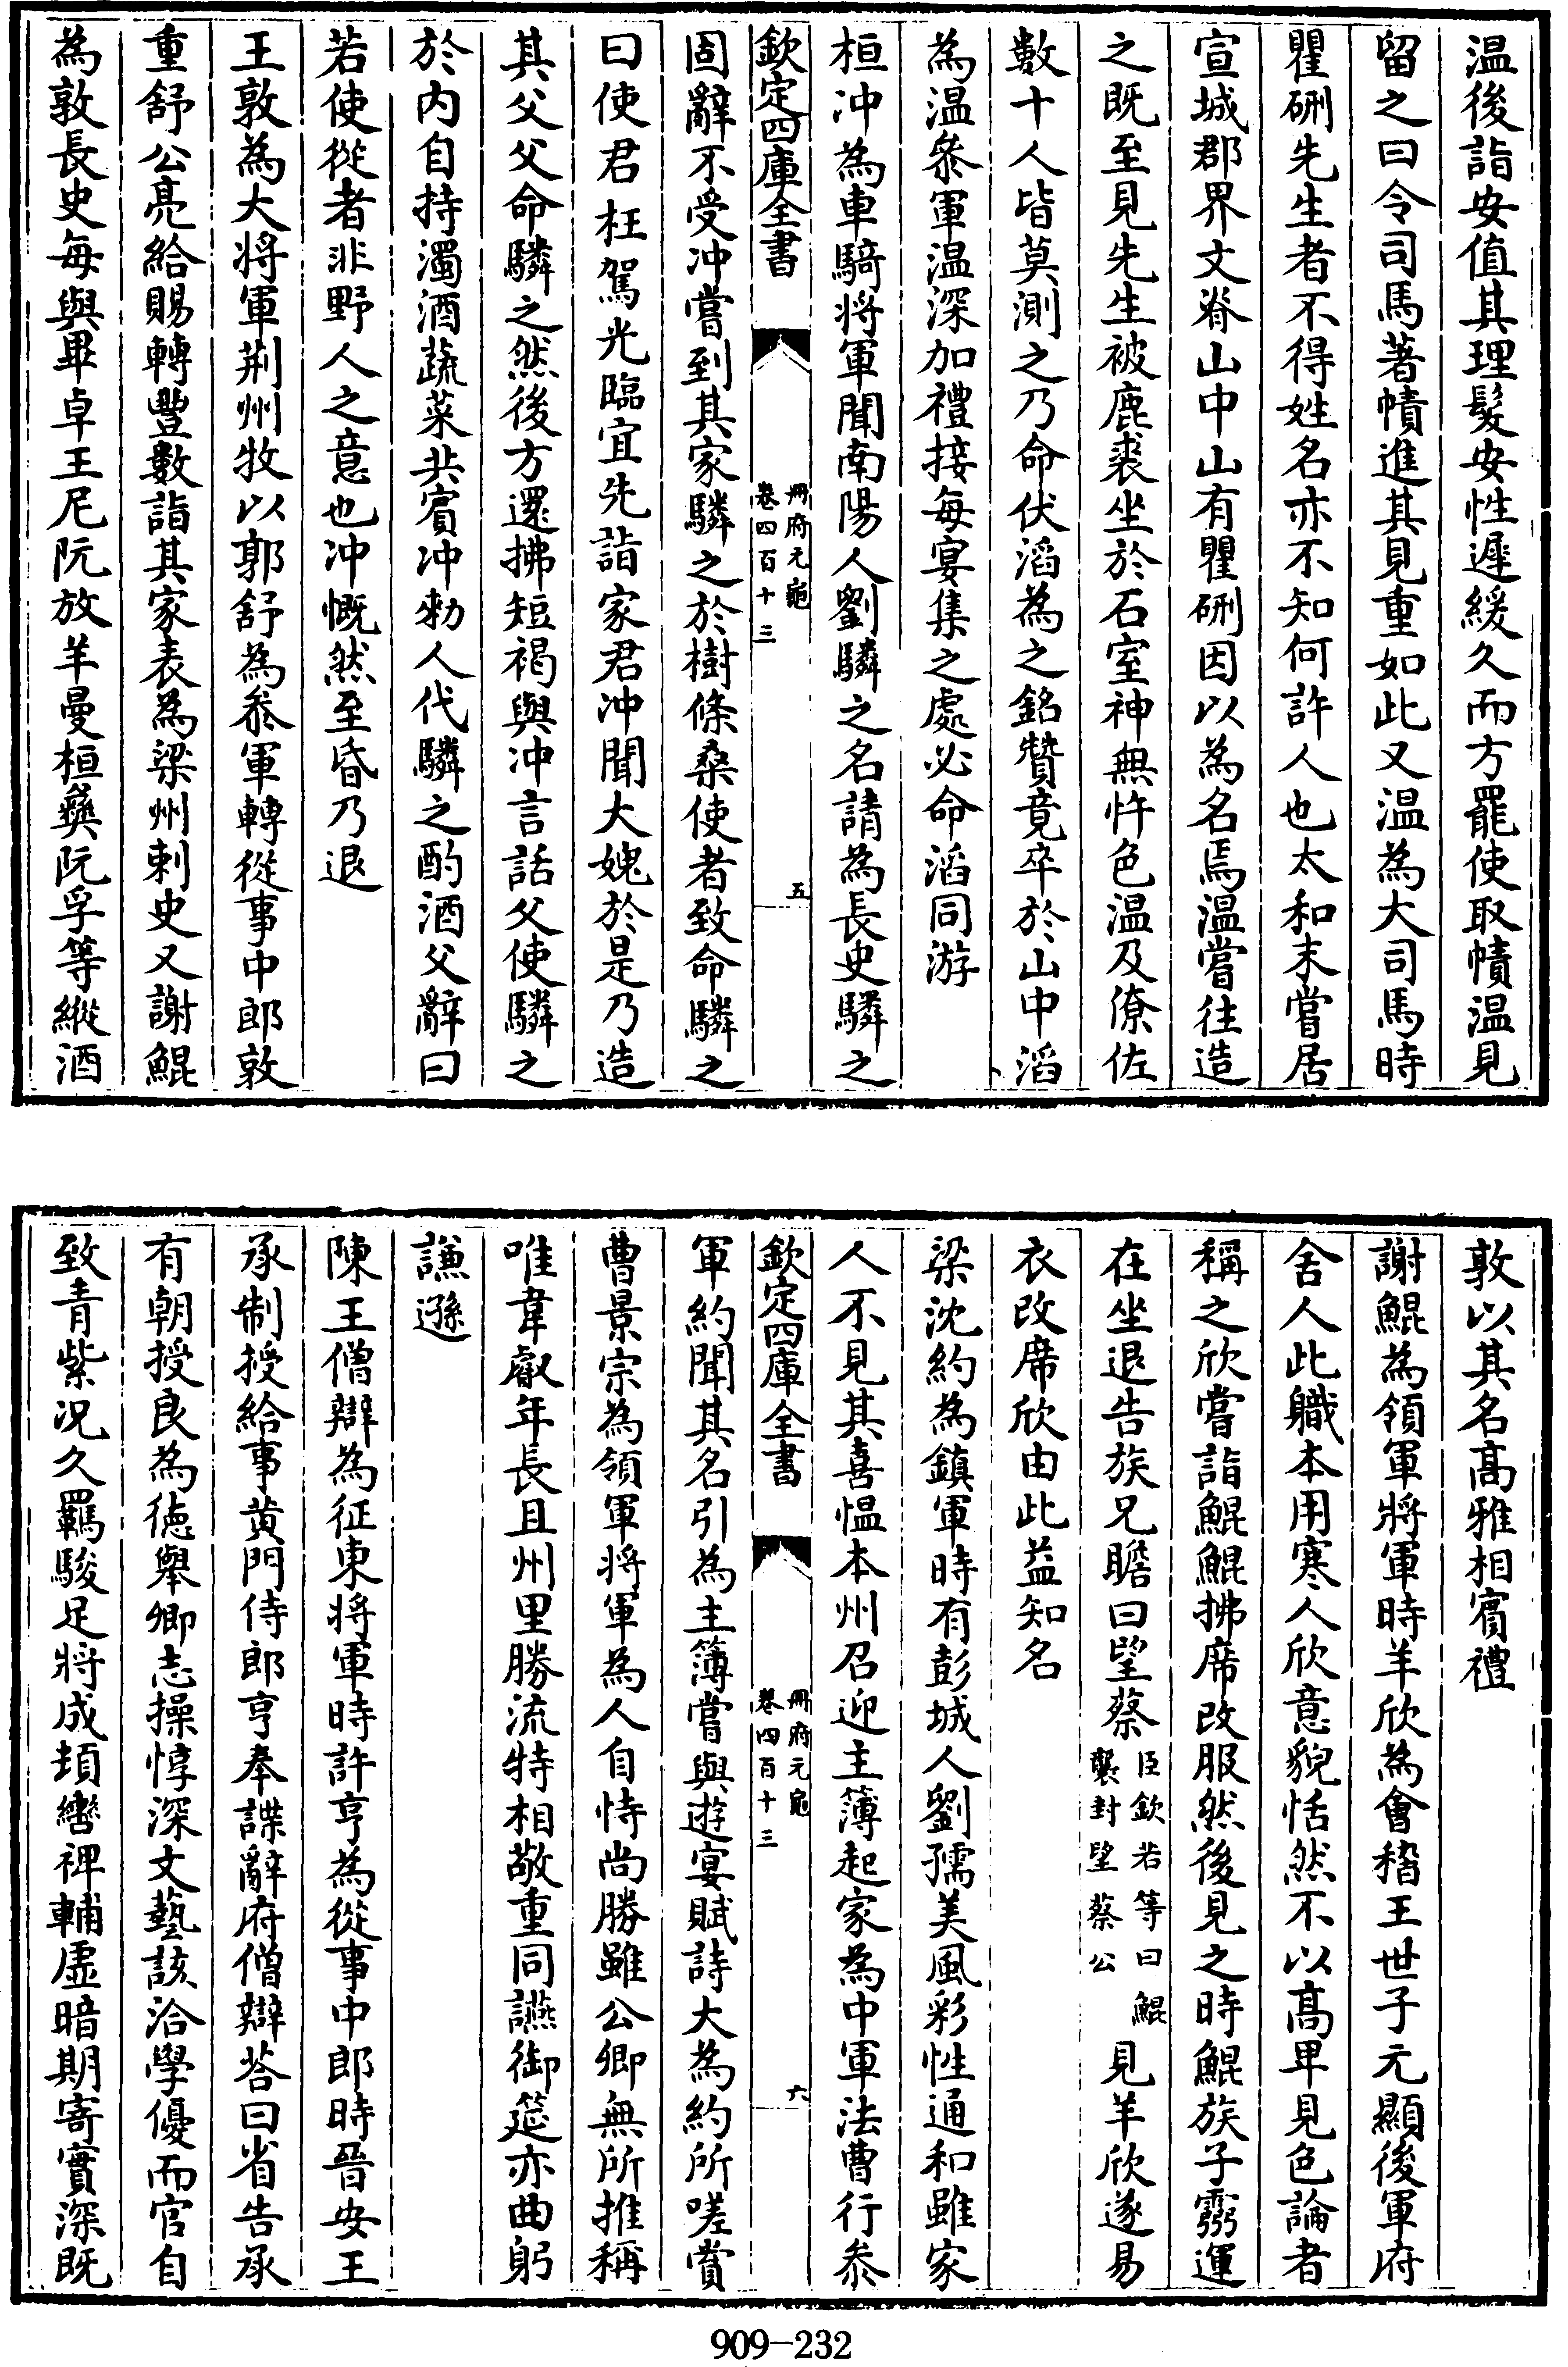 温後詣安值其理髮安性遲緩久而方罷使取幘温見
留之曰令司馬著幘進其見重如此又温為大司馬時
瞿硎先生者不得姓名亦不知何許人也太和末嘗居
宣城郡界文脊山中山有瞿硎因以為名焉温嘗往造
之既至見先生被鹿裘坐於石室神無忤色温及僚佐
數十人皆莫測之乃命伏滔為之銘贊竟卒於山中滔
為温叅軍温深加禮接每宴集之處必命滔同游
桓沖為車騎將軍聞南陽人劉驎之名請為長史驎之
欽定四庫全書
冊府元龜
卷四百十三
五
固辭不受沖嘗到其家驎之於樹條桑使者致命驎之
曰使君枉駕光臨宜先詣家君沖聞大媿於是乃造
其父父命驎之然後方還拂短褐與沖言話父使驎之
於内自持濁酒蔬菜共賓沖勑人代驎之酌酒父辭曰
若使從者非野人之意也沖慨然至昏乃退
王敦為大將軍荆州牧以郭舒為叅軍轉從事中郎敦
重舒公亮給賜轉豐數詣其家表為梁州刺史又謝鯤
為敦長史每與畢卓王尼阮放羊曼桓彛阮孚等縱酒
敦以其名髙雅相賓禮
謝鯤為領軍將軍時羊欣為會稽王世子元顯後軍府
舍人此職本用寒人欣意貌恬然不以髙卑見色論者
稱之欣嘗詣鯤鯤拂席改服然後見之時鯤族子靈運
在坐退告族兄瞻曰望蔡
臣欽若等曰鯤
襲封望蔡公
見羊欣遂易
衣改席欣由此益知名
梁沈約為鎮軍時有彭城人劉孺美風彩性通和雖家
人不見其喜愠本州召迎主簿起家為中軍法曹行叅
欽定四庫全書
冊府元龜
卷四百十三
六
軍約聞其名引為主簿嘗與遊宴賦詩大為約所嗟賞
曹景宗為領軍將軍為人自恃尚勝雖公卿無所推稱
唯韋叡年長且州里勝流特相敬重同讌御筵亦曲躬
謙遜
陳王僧辯為征東將軍時許亨為從事中郎時晉安王
承制授給事黄門侍郎亨奉諜辭府僧辯荅曰省告承
有朝授良為徳舉卿志操惇深文藝該洽學優而官自
致青紫況久羈駿足將成頓轡裨輔虚暗期寄實深既
909-232